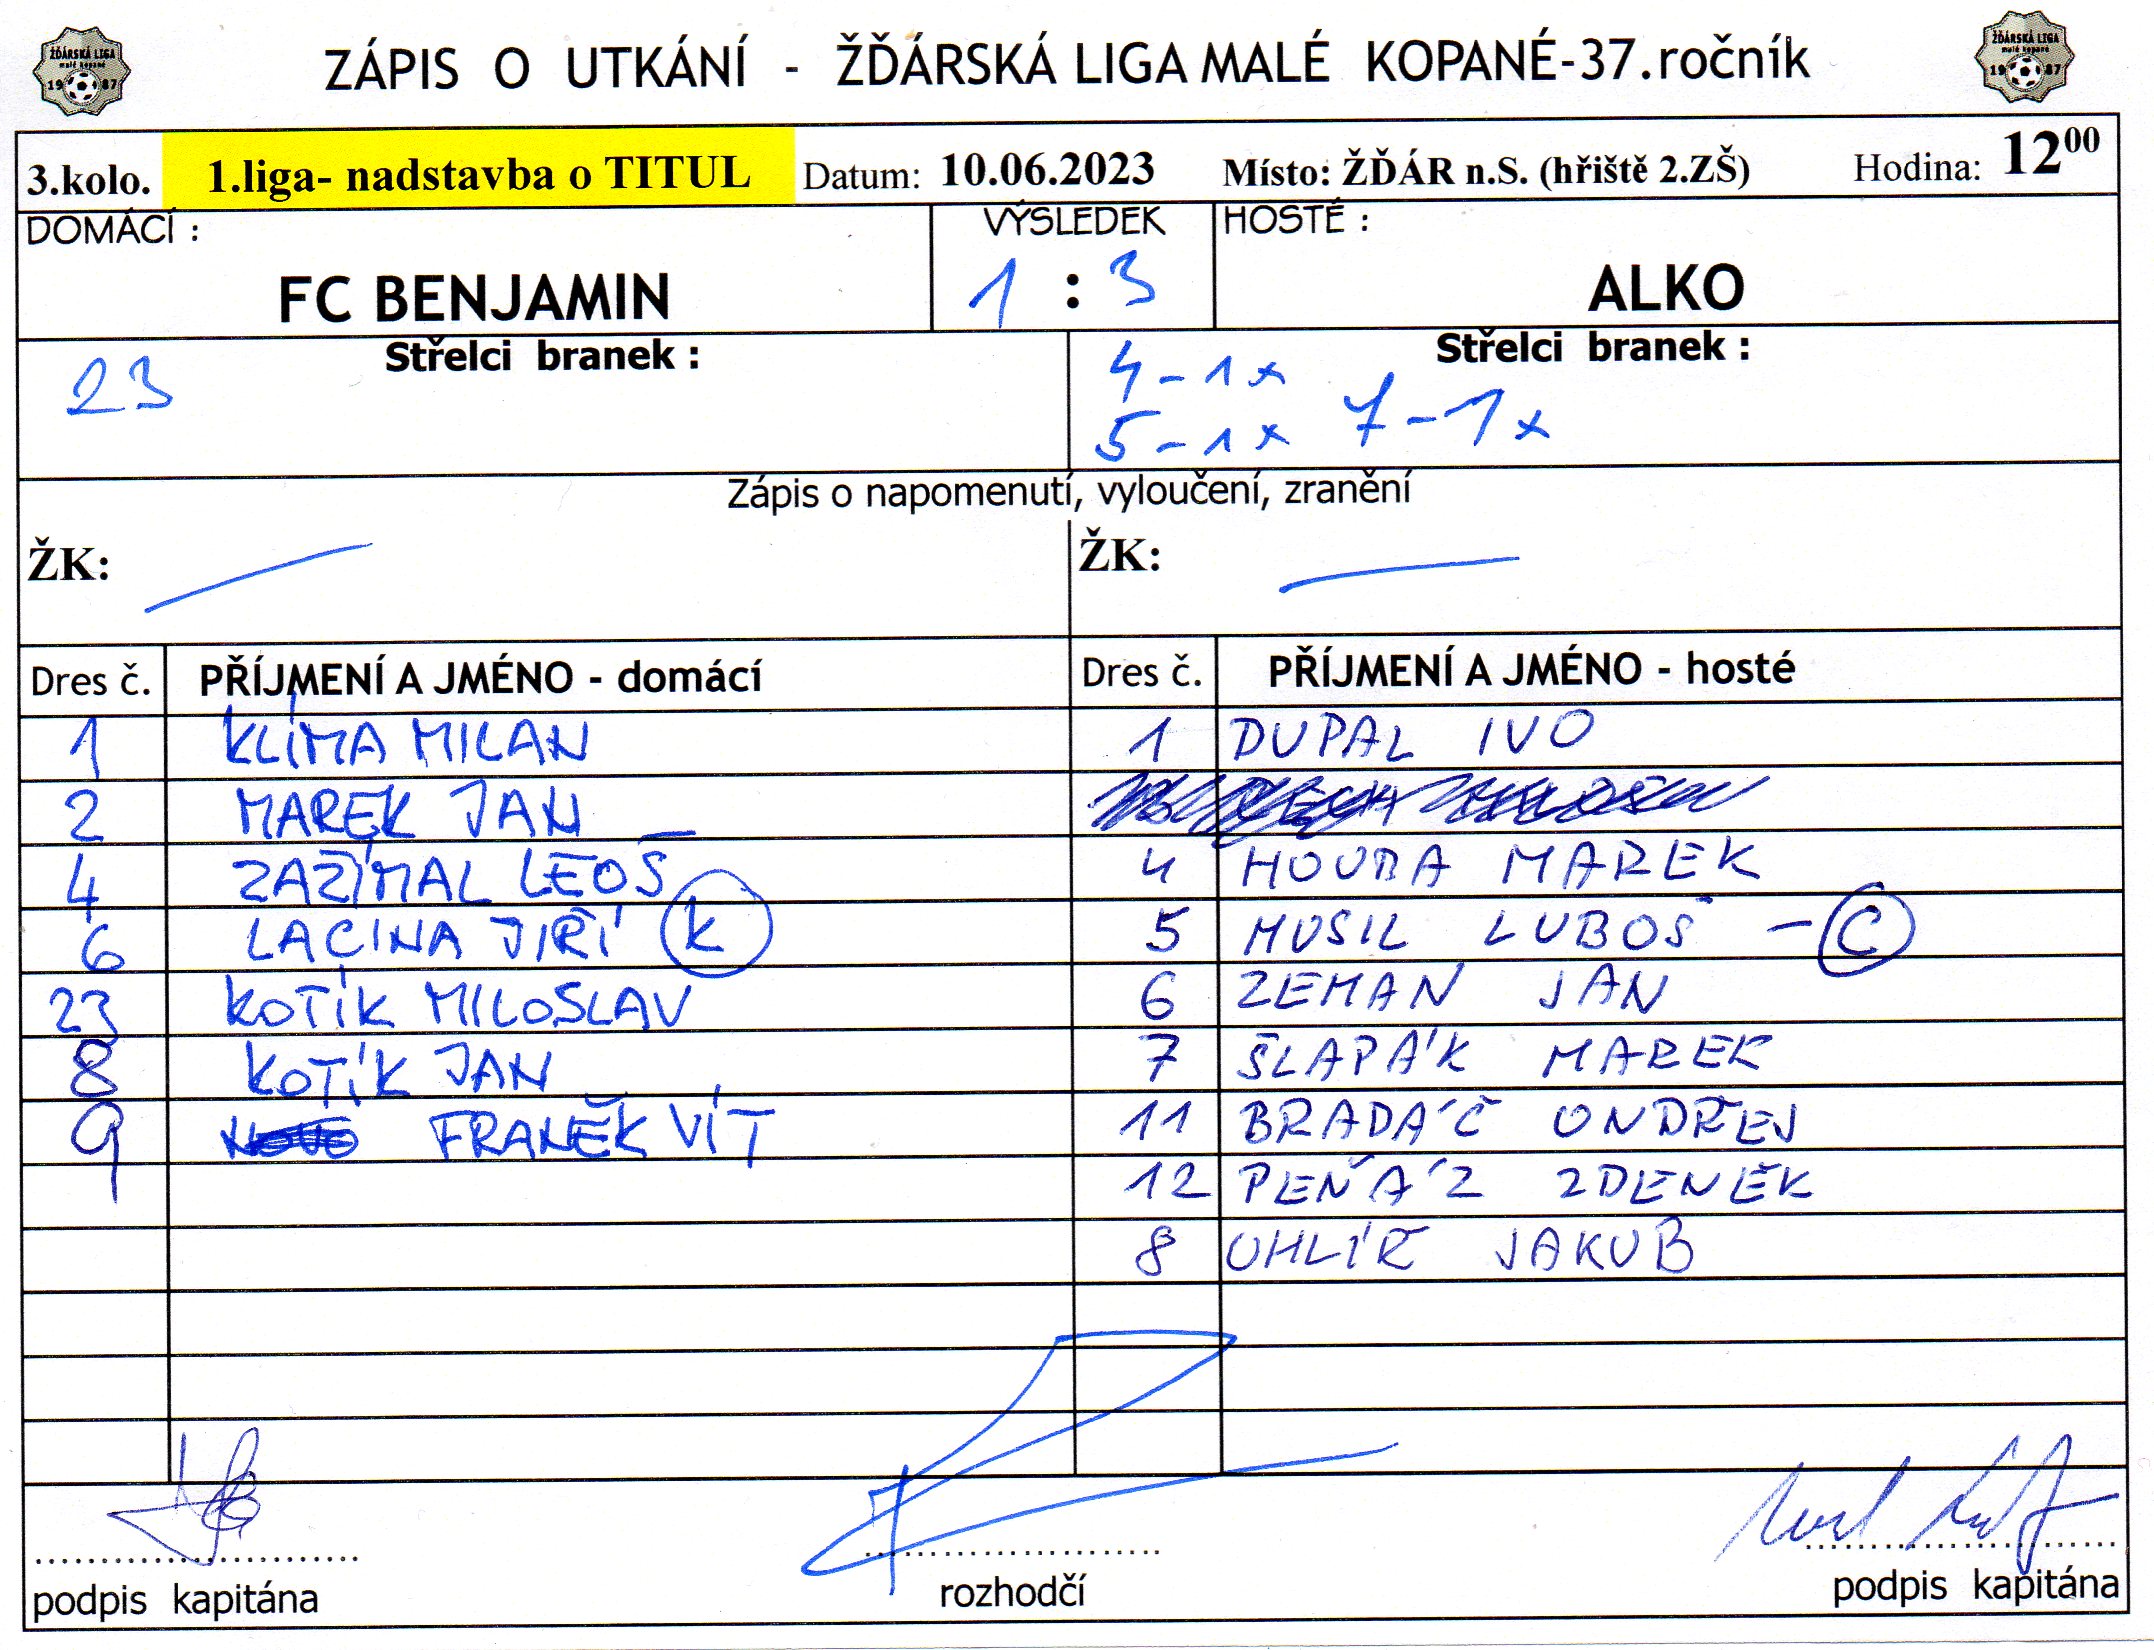 ŽĎÁRSKÁ LIGA
malé kopané
1987
ZÁPIS O UTKÁNÍ - ŽĎÁRSKÁ LIGA MALÉ KOPANÉ-37.ročník
ŽĎÁRSKÁ LIGA
malé kopané
1987
3.kolo. 1.liga- nadstavba o TITUL Datum: 10.06.2023 Místo: ŽĎÁR n.S. (hřiště 2.ZŠ) Hodina: 12⁰⁰
DOMÁCÍ : VÝSLEDEK HOSTÉ :
FC BENJAMIN 1 : 3 ALKO
Střelci branek : Střelci branek :
23 4-1x
5-1x 7-1x
Zápis o napomenutí, vyloučení, zranění
ŽK: ŽK:
Dres č. PŘÍJMENÍ A JMÉNO - domácí Dres č. PŘÍJMENÍ A JMÉNO - hosté
1 KLÍMA MILAN 1 DUPAL IVO
2 MAREK JAN
4 ZAŽÍMAL LEOŠ 4 HOUBA MAREK
6 LACINA JIŘÍ K 5 MUSIL LUBOŠ - C
23 KOTÍK MILOSLAV 6 ZEMAN JAN
8 KOTÍK JAN 7 ŠLAPÁK MAREK
9 FRANĚK VÍT 11 BRADÁČ ONDŘEJ
12 PEŇÁZ ZDENĚK
8 UHLÍŘ JAKUB
podpis kapitána rozhodčí podpis kapitána